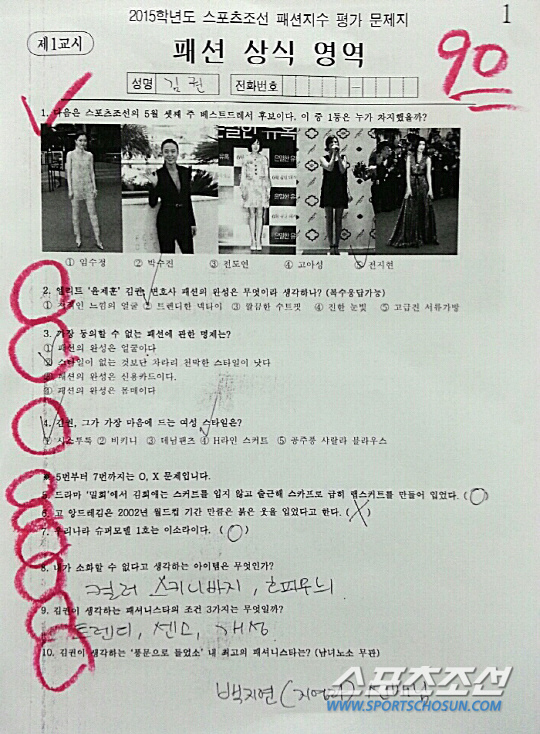 2015학년도 스포츠조선 패션지수 평가 문제지
1
제1교시
패션 상식 영역
90
성명 김권 전화번호
1. 다음은 스포츠조선의 5월 셋째 주 베스트드레서 후보이다. 이 중 1등은 누가 차지했을까?
① 임수정 ② 박수진 ③ 전도연 ④ 고아성 ⑤ 전지현
2. 엘리트 '윤제훈' 김권, 변호사 패션의 완성은 무엇이라 생각하나? (복수응답가능)
느낌의 얼굴 ② 트렌디한 넥타이 ③ 말끔한 수트핏 ④ 진한 눈빛 ⑤ 고급진 서류가방
3. 가장 동의할 수 없는 패션에 관한 명제는?
① 패션의 완성은 얼굴이다
스타일이 없는 것보단 차라리 천박한 스타일이 낫다
패션의 완성은 신용카드이다.
패션의 완성은 몸매이다
4. 김권, 그가 가장 마음에 드는 여성 스타일은?
① 시스루룩 ② 비키니 ③ 데님팬츠 ④ H라인 스커트 ⑤ 공주풍 샤랄라 블라우스
※ 5번부터 7번까지는 O, X 문제입니다.
5. 드라마 '밀회'에서 김희애는 스커트를 입지 않고 출근해 스카프로 급히 랩스커트를 만들어 입었다. (O)
6. 고 앙드레김은 2002년 월드컵 기간 만큼은 붉은 옷을 입었다고 한다. (X)
7. 우리나라 슈퍼모델 1호는 이소라이다. (O)
8. 내가 소화할 수 없다고 생각하는 아이템은 무엇인가?
컬러 스키니바지, 호피무늬
9. 김권이 생각하는 패셔니스타의 조건 3가지는 무엇일까?
트렌디, 센스, 개성
10. 김권이 생각하는 '풍문으로 들었소' 내 최고의 패셔니스타는? (남녀노소 무관)
백지연 (지영라)
스포츠조선
WWW.SPORTSCHOSUN.COM